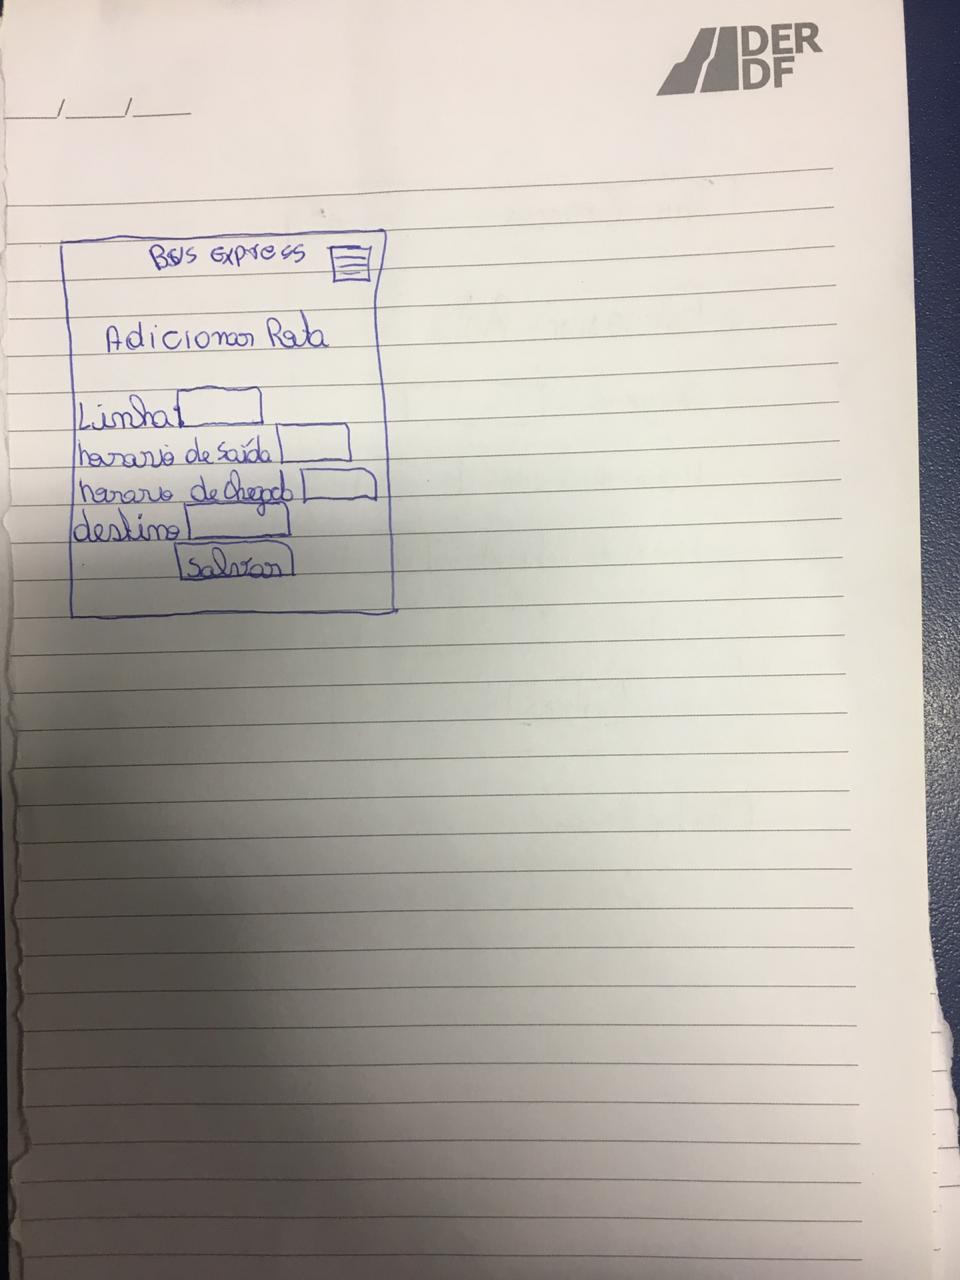 DER
DF
___/___/___
Bus Express
Adicionar Rota
Linha:
horario de saída
horario de chegada
destino
Salvar